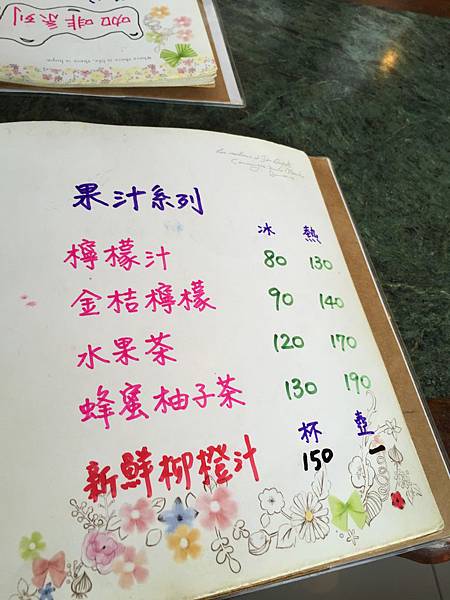 咖啡系列
果汁系列
冰 熱
檸檬汁 80 130
金桔檸檬 90 140
水果茶 120 170
蜂蜜柚子茶 130 190
杯 壺
新鮮柳橙汁 150 一